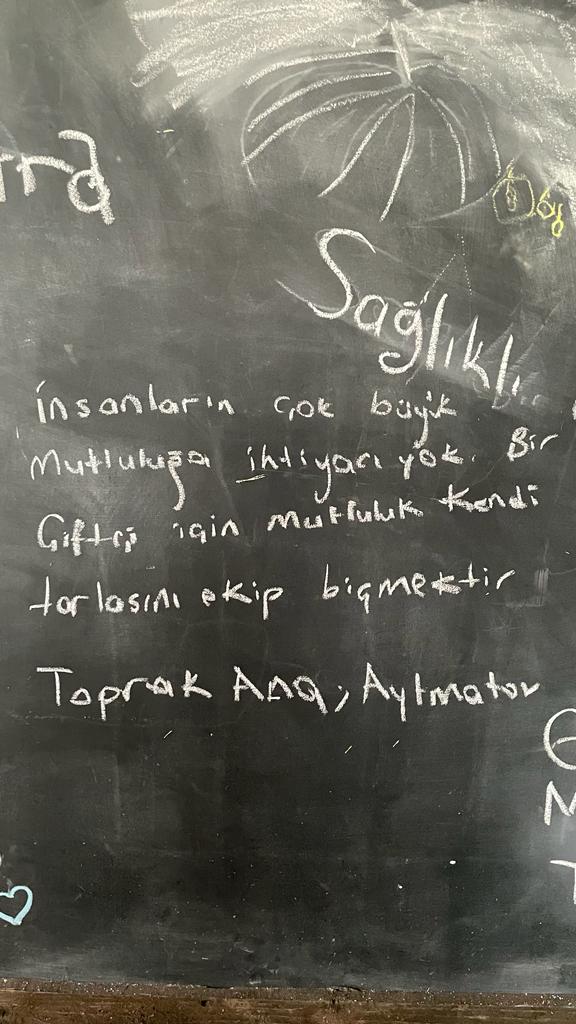 Sağlıklı
insanların çok büyük
Mutluluğa ihtiyacı yok. Bir
Çiftçi için mutluluk kendi
tarlasını ekip biçmektir
Toprak Ana, Aytmatov